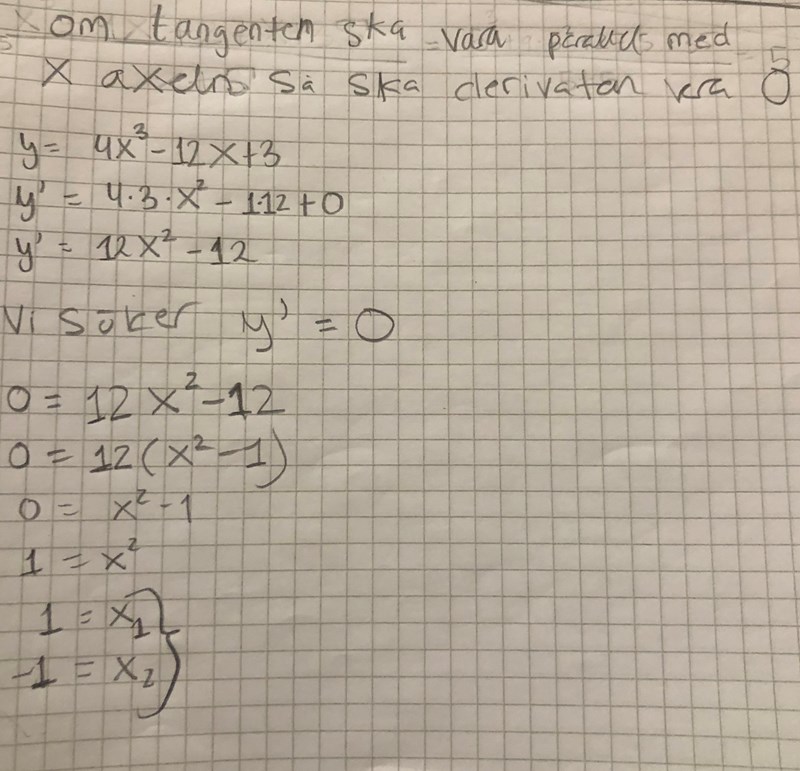 om tangenten ska vara parallell med
x axeln så ska derivatan vra 0
y = 4x³ - 12x + 3
y' = 4·3·x² - 1·12 + 0
y' = 12x² - 12
Vi söker y' = 0
0 = 12x² - 12
0 = 12(x² - 1)
0 = x² - 1
1 = x²
1 = x₁
-1 = x₂